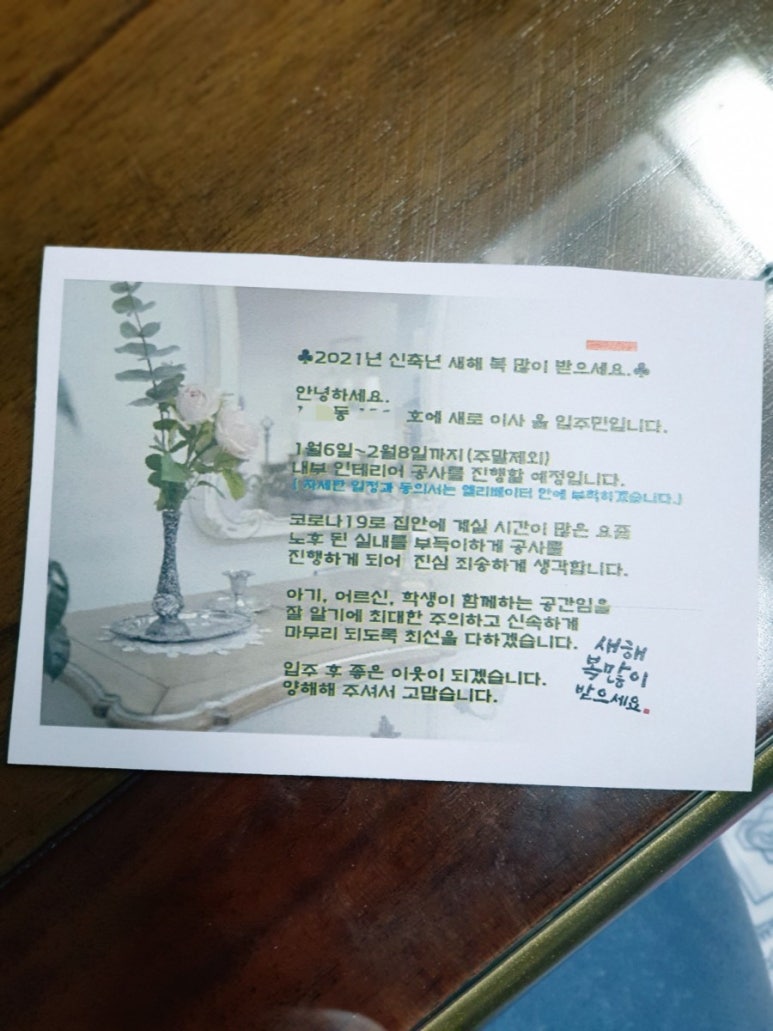 ♣2021년 신축년 새해 복 많이 받으세요.♣
안녕하세요.
동 호에 새로 이사 올 입주민입니다.
1월6일~2월8일까지(주말제외)
내부 인테리어 공사를 진행할 예정입니다.
( 자세한 일정과 동의서는 엘리베이터 안에 부착하겠습니다.)
코로나19로 집안에 계실 시간이 많은 요즘
노후 된 실내를 부득이하게 공사를
진행하게 되어 진심 죄송하게 생각합니다.
아기, 어르신, 학생이 함께하는 공간임을
잘 알기에 최대한 주의하고 신속하게
마무리 되도록 최선을 다하겠습니다.
입주 후 좋은 이웃이 되겠습니다.
양해해 주셔서 고맙습니다.
새해
복많이
받으세요.